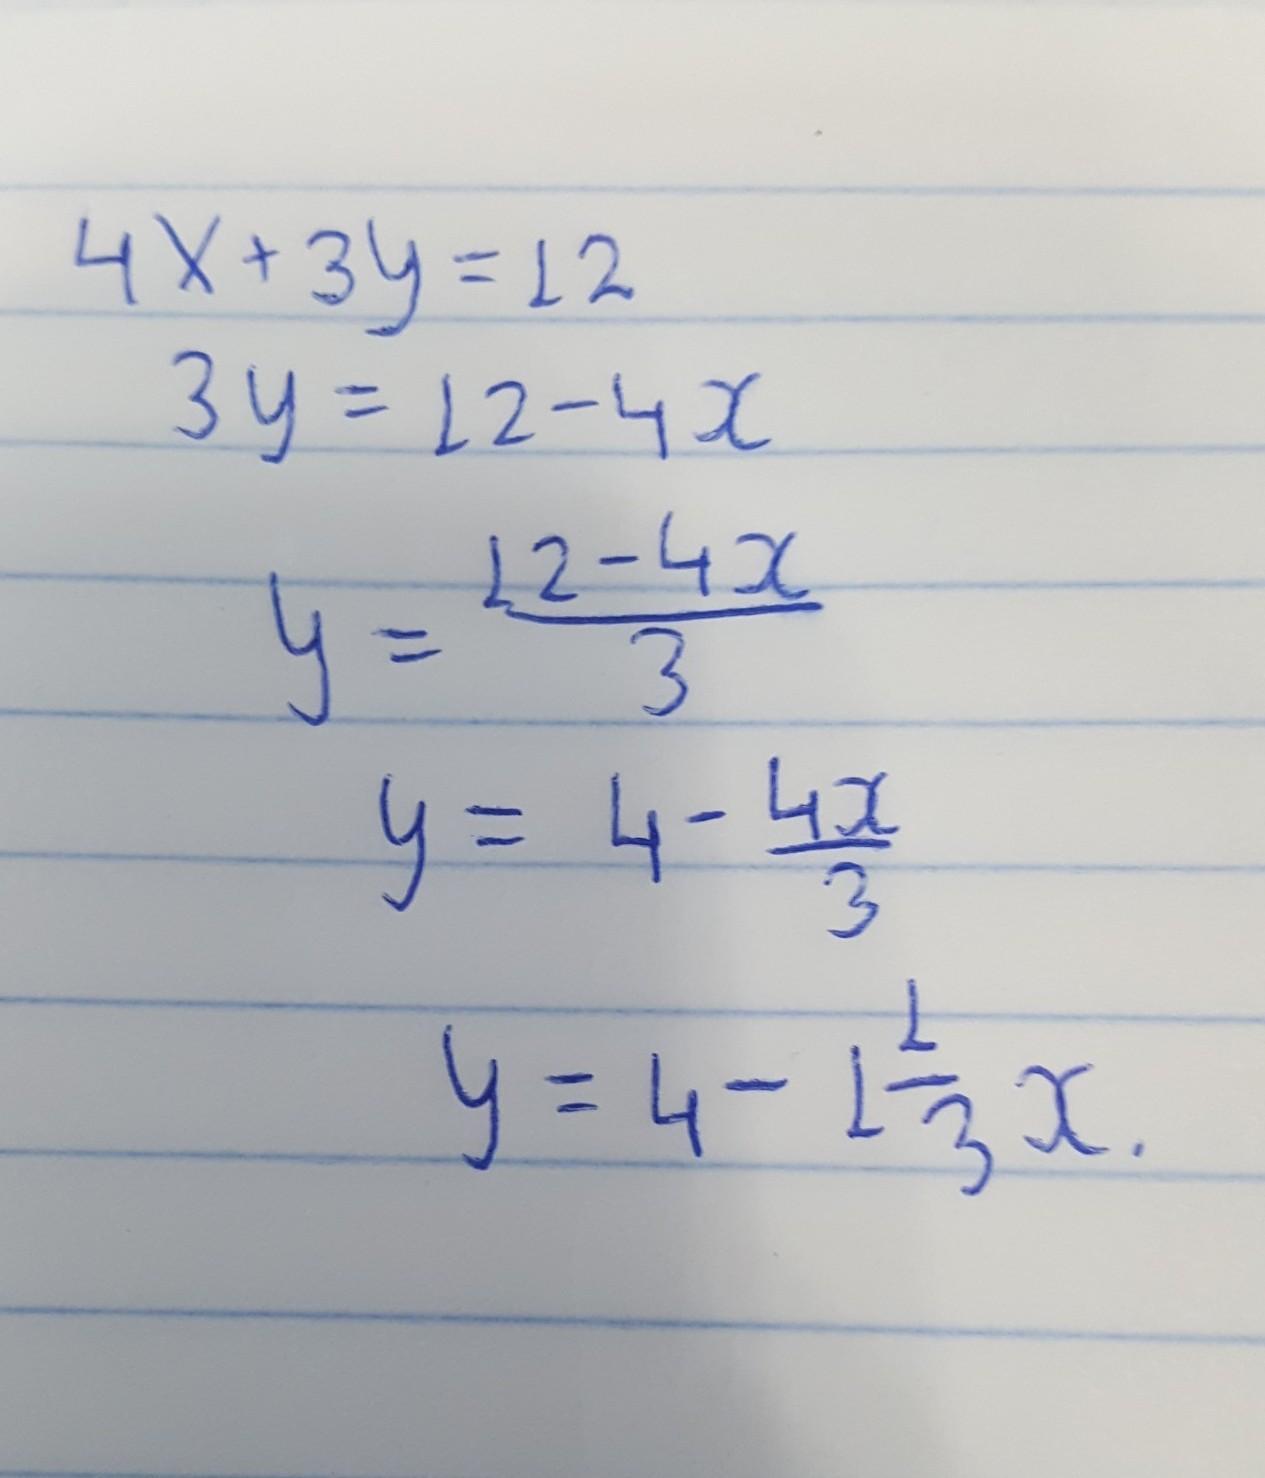 4X+3y=12
3y=12-4x
y=\frac{12-4x}{3}
y=4-\frac{4x}{3}
y=4-1\frac{1}{3}x.